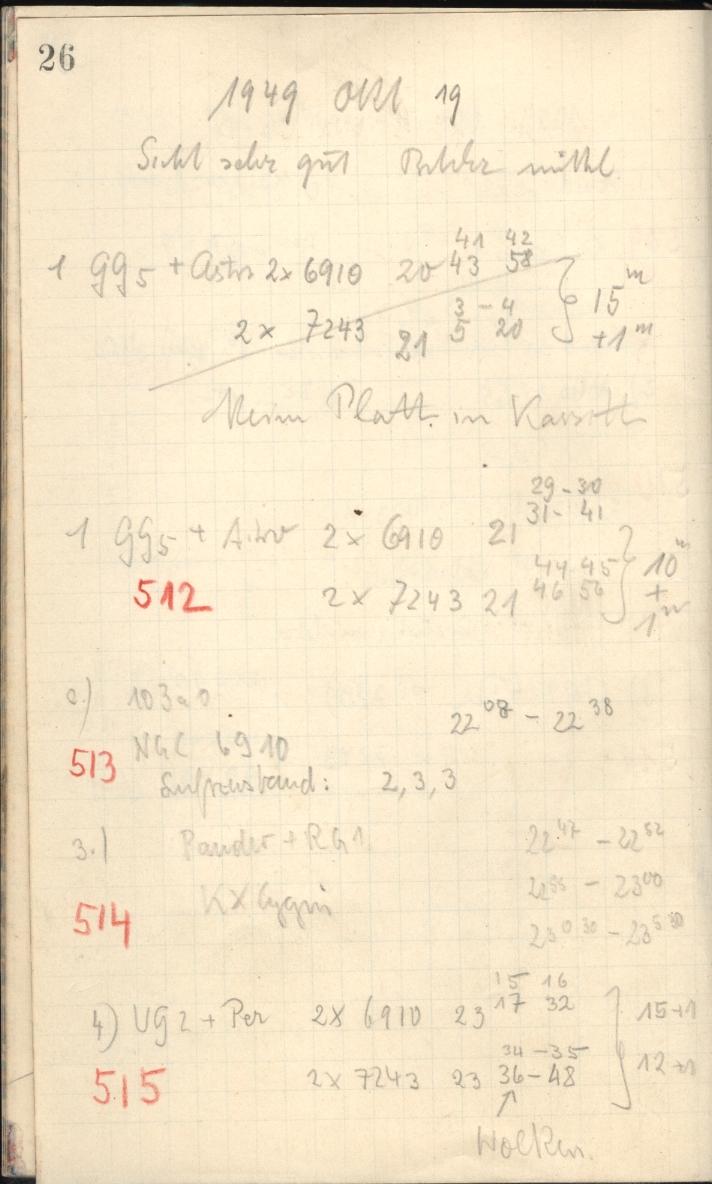 26
1949 Okt 19
Sicht sehr gut Bilder mittel
41 42
1 GG5 + Astro 2x 6910 20 43 58
3 - 4
2x 7243 21 5 20
15m
+1m
Keine Platt. in Kassett
29-30
1 GG5 + Astro 2x 6910 21 31- 41
44 45
512 2x 7243 21 46 56
10m
+
1m
2.) 103a0
22 08 - 22 38
513 NGC 6910
2, 3, 3
3.) + RG1 22 47 - 22 52
22 55 - 23 00
514 KX Cygni
23 0 30 - 23 5 30
15 16
4) UG2 + Per 2x 6910 23 17 32 15+1
34 - 35
515 2x 7243 23 36-48 12+1
↑
Wolken.